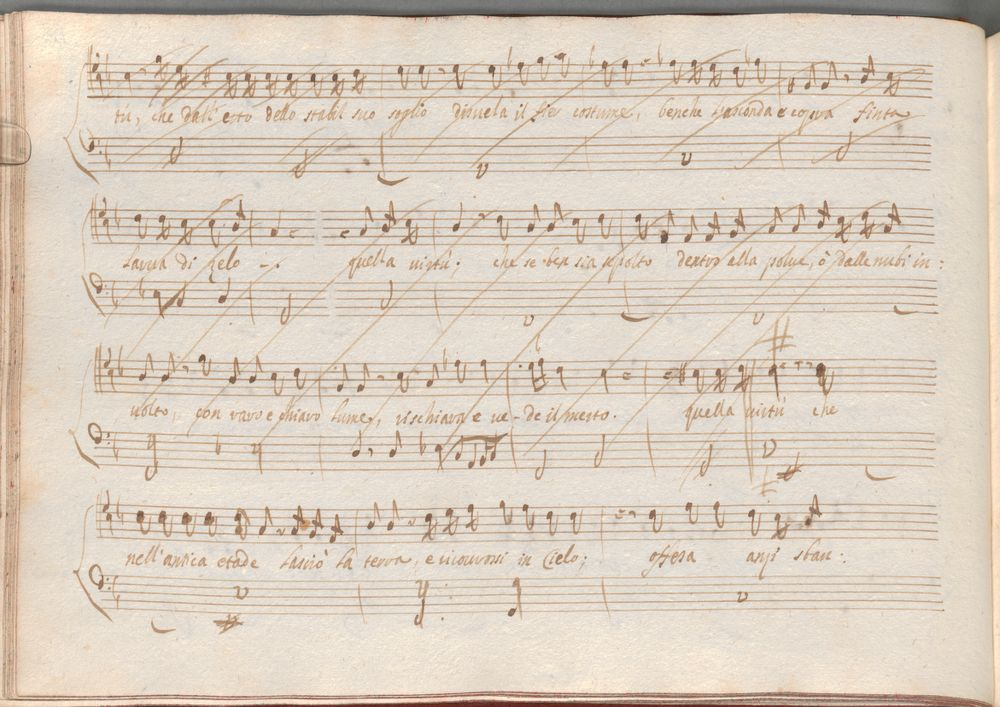 tù, che dall'erto dello stabil suo soglio disuela il fier costume, benche nasconda e copra finta
Larua di zelo - . quella uirtù; che se ben sia sepolto dentro alla polue, ò dalle nubi in:
uolto, con raro e chiaro lume, rischiara e ue-de il merto. quella uirtù che
nell'antica etade lasciò la terra, e ricourossi in Cielo; offesa anzi stan: